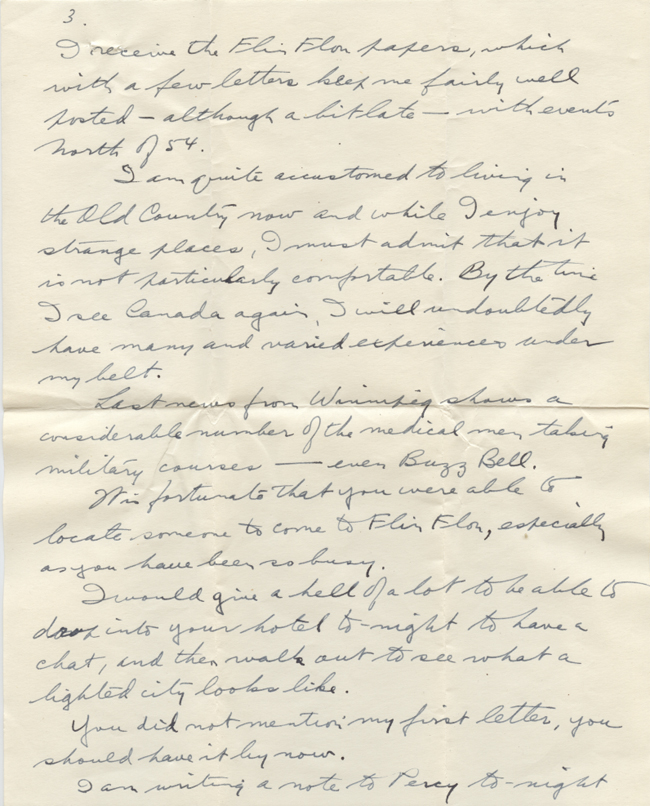 3.
I receive the Flin Flon papers, which
with a few letters keep me fairly well
posted – although a bit late – with events
North of 54.
I am quite accustomed to living in
the Old Country now and while I enjoy
strange places, I must admit that it
is not particularly comfortable. By the time
I see Canada again, I will undoubtedly
have many and varied experiences under
my belt.
Last news from Winnipeg shows a
considerable number of the medical men taking
military courses – even Buzz Bell.
It is fortunate that you were able to
locate someone to come to Flin Flon, especially
as you have been so busy.
I would give a hell of a lot to be able to
drop into your hotel to-night to have a
chat, and then walk out to see what a
lighted city looks like.
You did not mention my first letter, you
should have it by now.
I am writing a note to Percy to-night